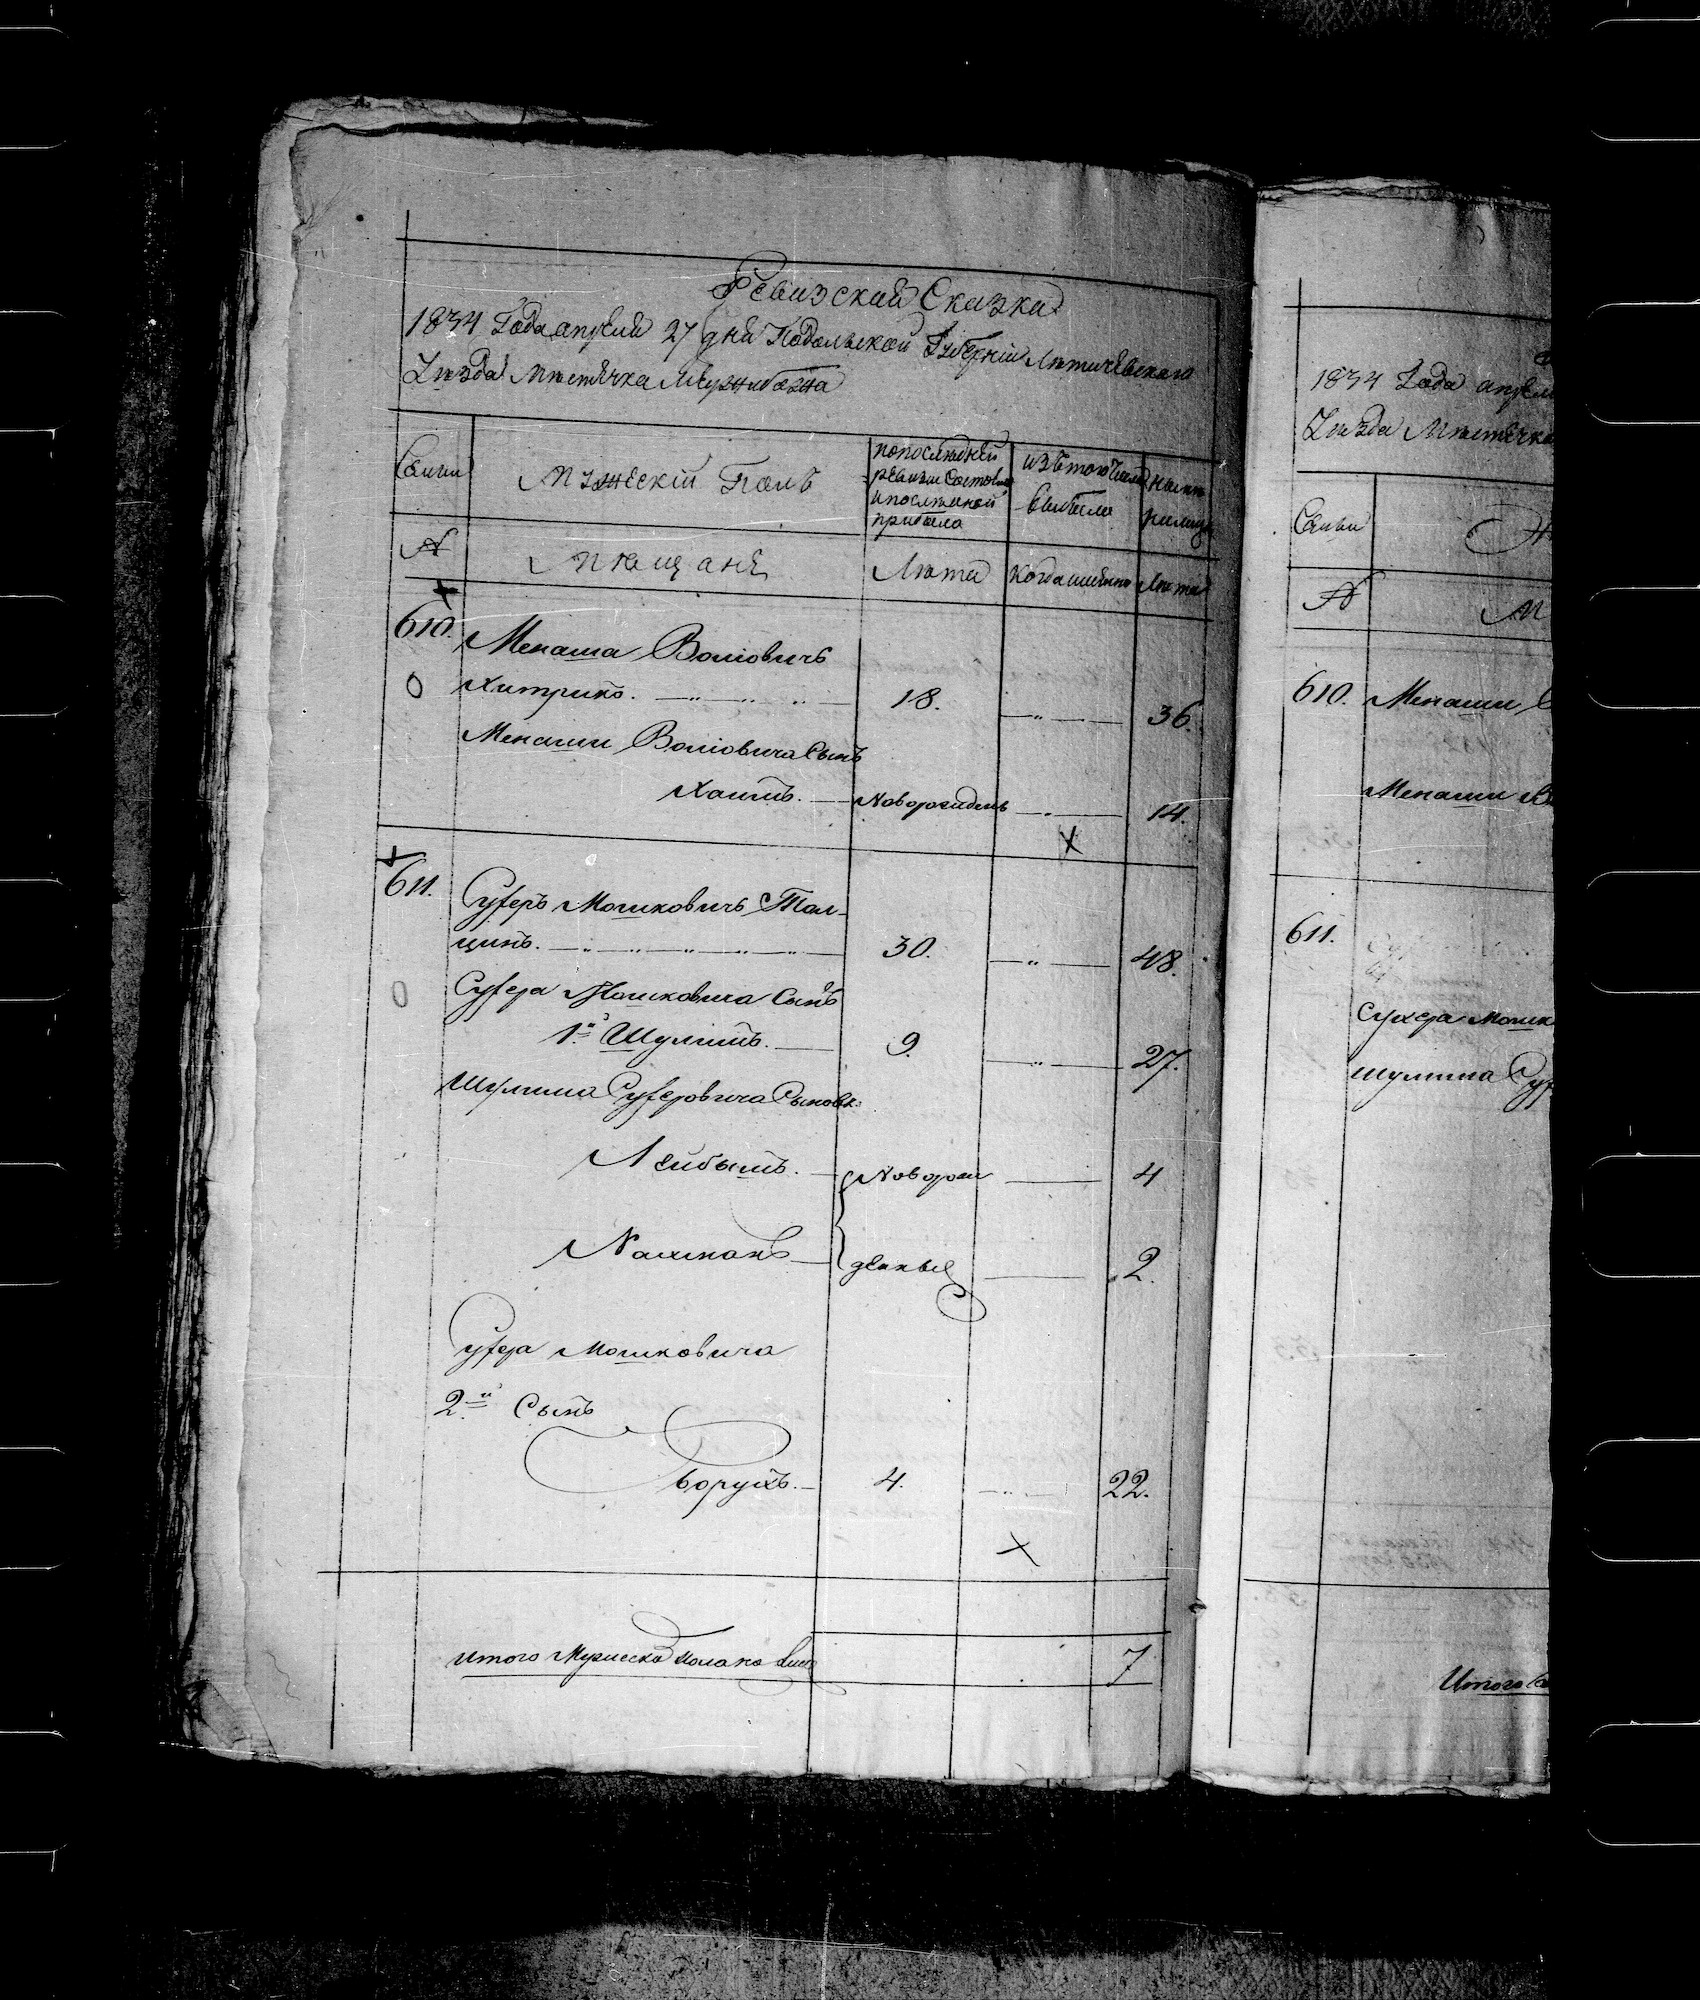 Ревизский Сказки
1834 Года апреля 27 дня Подольской Губерніи Летичевского
Уезда Местечка Межибожа
Семьи
мужескій Полъ
попоследней
ревизіи Состояло
ипоследней
прибыло
изътого Числа
выбыло
ныне
налицо
№
мещане
Лета
когда именно
Лета
610. Менаша Волиовичъ
0 Хитрикъ. 18. 36.
Менаши Волиовича Сынъ
Хаимъ. Новорожденъ 14.
X
611. Суферъ Мошковичъ Тол-
цинъ. 30. 48.
0 Суфера Мошковича Сынъ
1й Шулимъ. 9. 27.
Шулима Суферовича Сыновя
Лейбышъ. Ноборож 4
Нахманъ денные 2.
Суфера Мошковича
2й Сынъ
Борухъ. 4. 22.
X
Итого Мужеска пола на лицо 7
1834 Года апрел
Уезда Местечка
Семьи
Ж
№
М
610. Менаши
Менаши В
611.
Сухера Мошк
Шулима Суф
Итого